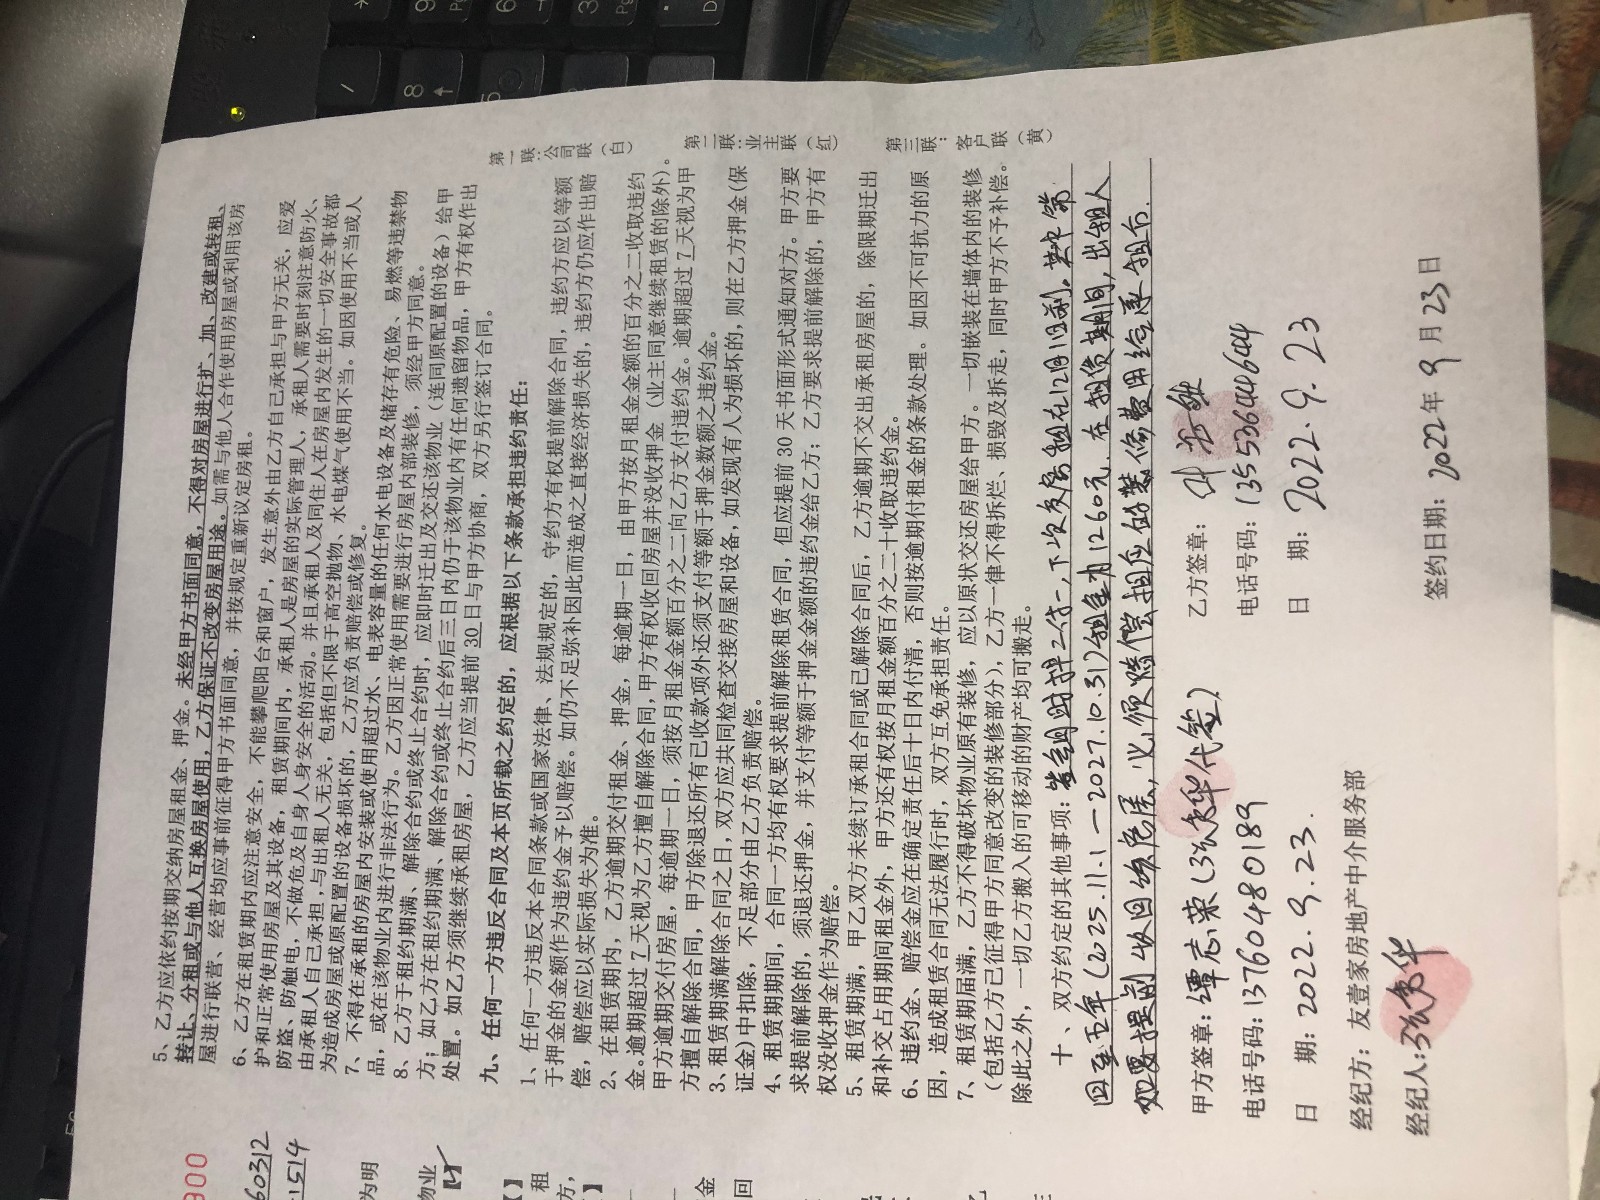 5、乙方应依约按期交纳房屋租金、押金。未经甲方书面同意，不得对房屋进行扩、加、改建或转租、
转让、分租或与他人互换房屋使用，乙方保证不改变房屋用途。如需与他人合作使用房屋或利用该房
屋进行联营、经营均应事前征得甲方书面同意，并按规定重新议定房租。
6、乙方在租赁期内应注意安全，不能攀爬阳台和窗户，发生意外由乙方自己承担与甲方无关，应爱
护和正常使用房屋及其设备，租赁期间内，承租人是房屋的实际管理人，承租人需要时刻注意防火、
防盗、防触电，不做危及自身人身安全的活动。并且承租人及同住人在房屋内发生的一切安全事故都
由承租人自己承担，与出租人无关，包括但不限于高空抛物、水电煤气使用不当。如因使用不当或人
为造成房屋或原配置的设备损坏的，乙方应负责赔偿或修复。
7、不得在承租的房屋内安装或使用超过水、电表容量的任何水电设备及储存有危险、易燃等违禁物
品，或在该物业内进行非法行为。乙方因正常使用需要进行房屋内部装修，须经甲方同意。
8、乙方于租约期满、解除合约或终止合约时，应即时迁出及交还该物业（连同原配置的设备）给甲
方；如乙方在租约期满、解除合约或终止合约后三日内仍于该物业内有任何遗留物品，甲方有权作出
处置。如乙方须继续承租房屋，乙方应当提前30日与甲方协商，双方另行签订合同。
九、任何一方违反合同及本页所载之约定的，应根据以下条款承担违约责任：
1、任何一方违反本合同条款或国家法律、法规规定的，守约方有权提前解除合同，违约方应以等额
于押金的金额作为违约金予以赔偿。如仍不足弥补因此而造成之直接经济损失的，违约方仍应作出赔
偿，赔偿应以实际损失为准。
2、在租赁期内，乙方逾期交付租金、押金，每逾期一日，由甲方按月租金金额的百分之二收取违约
金。逾期超过7天视为乙方擅自解除合同，甲方有权收回房屋并没收押金（业主同意继续租赁的除外）。
甲方逾期交付房屋，每逾期一日，须按月租金金额百分之二向乙方支付违约金。逾期超过7天视为甲
方擅自解除合同，甲方除退还所有已收款项外还须支付等额于押金数额之违约金。
3、租赁期满解除合同之日，双方应共同检查交接房屋和设备，如发现有人为损坏的，则在乙方押金(保
证金)中扣除，不足部分由乙方负责赔偿。
4、租赁期期间，合同一方均有权要求提前解除租赁合同，但应提前30天书面形式通知对方。甲方要
求提前解除的，须退还押金，并支付等额于押金金额的违约金给乙方；乙方要求提前解除的，甲方有
权没收押金作为赔偿。
5、租赁期满，甲乙双方未续订承租合同或已解除合同后，乙方逾期不交出承租房屋的，除限期迁出
和补交占用期间租金外，甲方还有权按月租金额百分之二十收取违约金。
6、违约金、赔偿金应在确定责任后十日内付清，否则按逾期付租金的条款处理。如因不可抗力的原
因，造成租赁合同无法履行时，双方互免承担责任。
7、租赁期届满，乙方不得破坏物业原有装修，应以原状交还房屋给甲方。一切嵌装在墙体内的装修
（包括乙方已征得甲方同意改变的装修部分），乙方一律不得拆烂、损毁及拆走，同时甲方不予补偿。
除此之外，一切乙方搬入的可移动的财产均可搬走。
十、双方约定的其他事项：当合同时押二付一，下次房租在12月1日前，其中第
四至五年(2025.11.1—2027.10.31)租金为1260元，在租赁期间，出租人
如要提前收回房屋，必须赔偿相应的装修费用给承租方.
甲方签章：谭志荣（张秀华代签） 乙方签章：
电话号码：13760480189 电话号码：13553644644
日 期：2022.9.23. 日 期：2022.9.23
经纪方：友壹家房地产中介服务部
经纪人：张秀华 签约日期：2022年9月23日
第一联：公司联（白）
第二联：业主联（红）
第三联：客户联（黄）
900
60312
1514
为明
物业
租
方，
金
回